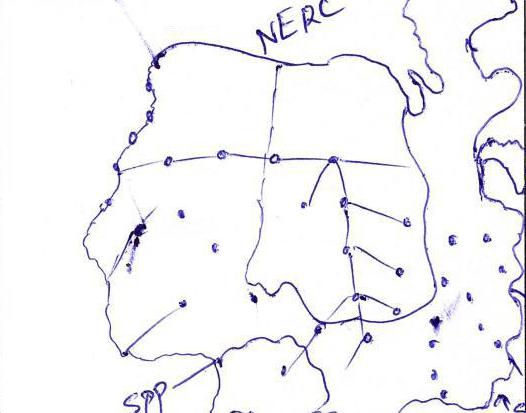 NERC
SPP